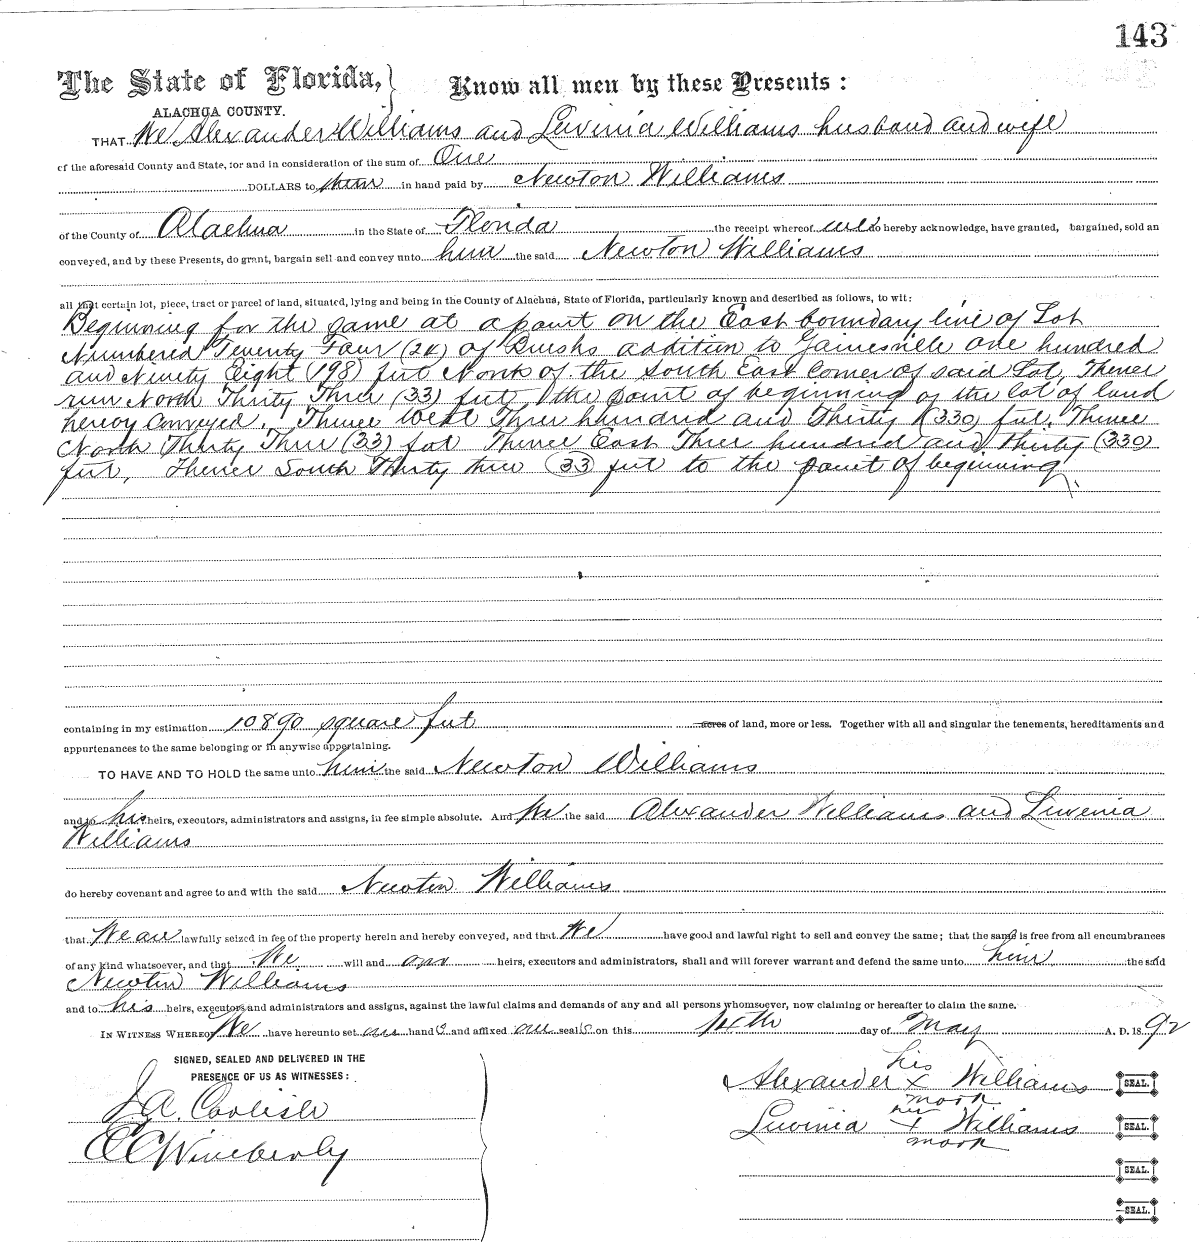 143
The State of Florida,} Know all men by these Presents:
ALACHUA COUNTY.
THAT We Alexander Williams and Luvinia Williams husband and wife
of the aforesaid County and State, for and in consideration of the sum of One
DOLLARS to them in hand paid by Newton Williams
of the County of Alachua in the State of Florida the receipt whereof we do hereby acknowledge, have granted, bargained, sold an
conveyed, and by these Presents, do grant, bargain sell and convey unto him the said Newton Williams
all that certain lot, piece, tract or parcel of land, situated, lying and being in the County of Alachua, State of Florida, particularly known and described as follows, to wit:
Beginning for the same at a point on the East boundary line of Lot
Numbered Twenty Four (24) of Brushs addition to Gainesville one hundred
and Ninety Eight (198) feet North of the South East Corner of said Lot, Thence
run North Thirty Three (33) feet, the point of beginning of the lot of land
hereby conveyed, Thence West Three hundred and Thirty (330) feet, Thence
North Thirty Three (33) feet Thence East Three hundred and Thirty (330)
feet, Thence South Thirty three (33) feet to the point of beginning
containing in my estimation 10890 square feet acres of land, more or less. Together with all and singular the tenements, hereditaments and
appurtenances to the same belonging or in anywise appertaining.
TO HAVE AND TO HOLD the same unto him the said Newton Williams
and to his heirs, executors, administrators and assigns, in fee simple absolute. And We the said Alexander Williams and Luvenia
Williams
do hereby covenant and agree to and with the said Newton Williams
that We are lawfully seized in fee of the property herein and hereby conveyed, and that We have good and lawful right to sell and convey the same; that the same is free from all encumbrances
of any kind whatsoever, and that We will and our heirs, executors and administrators, shall and will forever warrant and defend the same unto him the said
Newton Williams
and to his heirs, executors and administrators and assigns, against the lawful claims and demands of any and all persons whomsoever, now claiming or hereafter to claim the same.
IN WITNESS WHEREOF We have hereunto set our hands and affixed our seals on this day of May A. D. 1892
SIGNED, SEALED AND DELIVERED IN THE
PRESENCE OF US AS WITNESSES:
his
Alexander x Williams SEAL.
mark
J.A. Carlisle
her
Luvinia + Williams SEAL.
mark
C C Wimberly
SEAL.
SEAL.